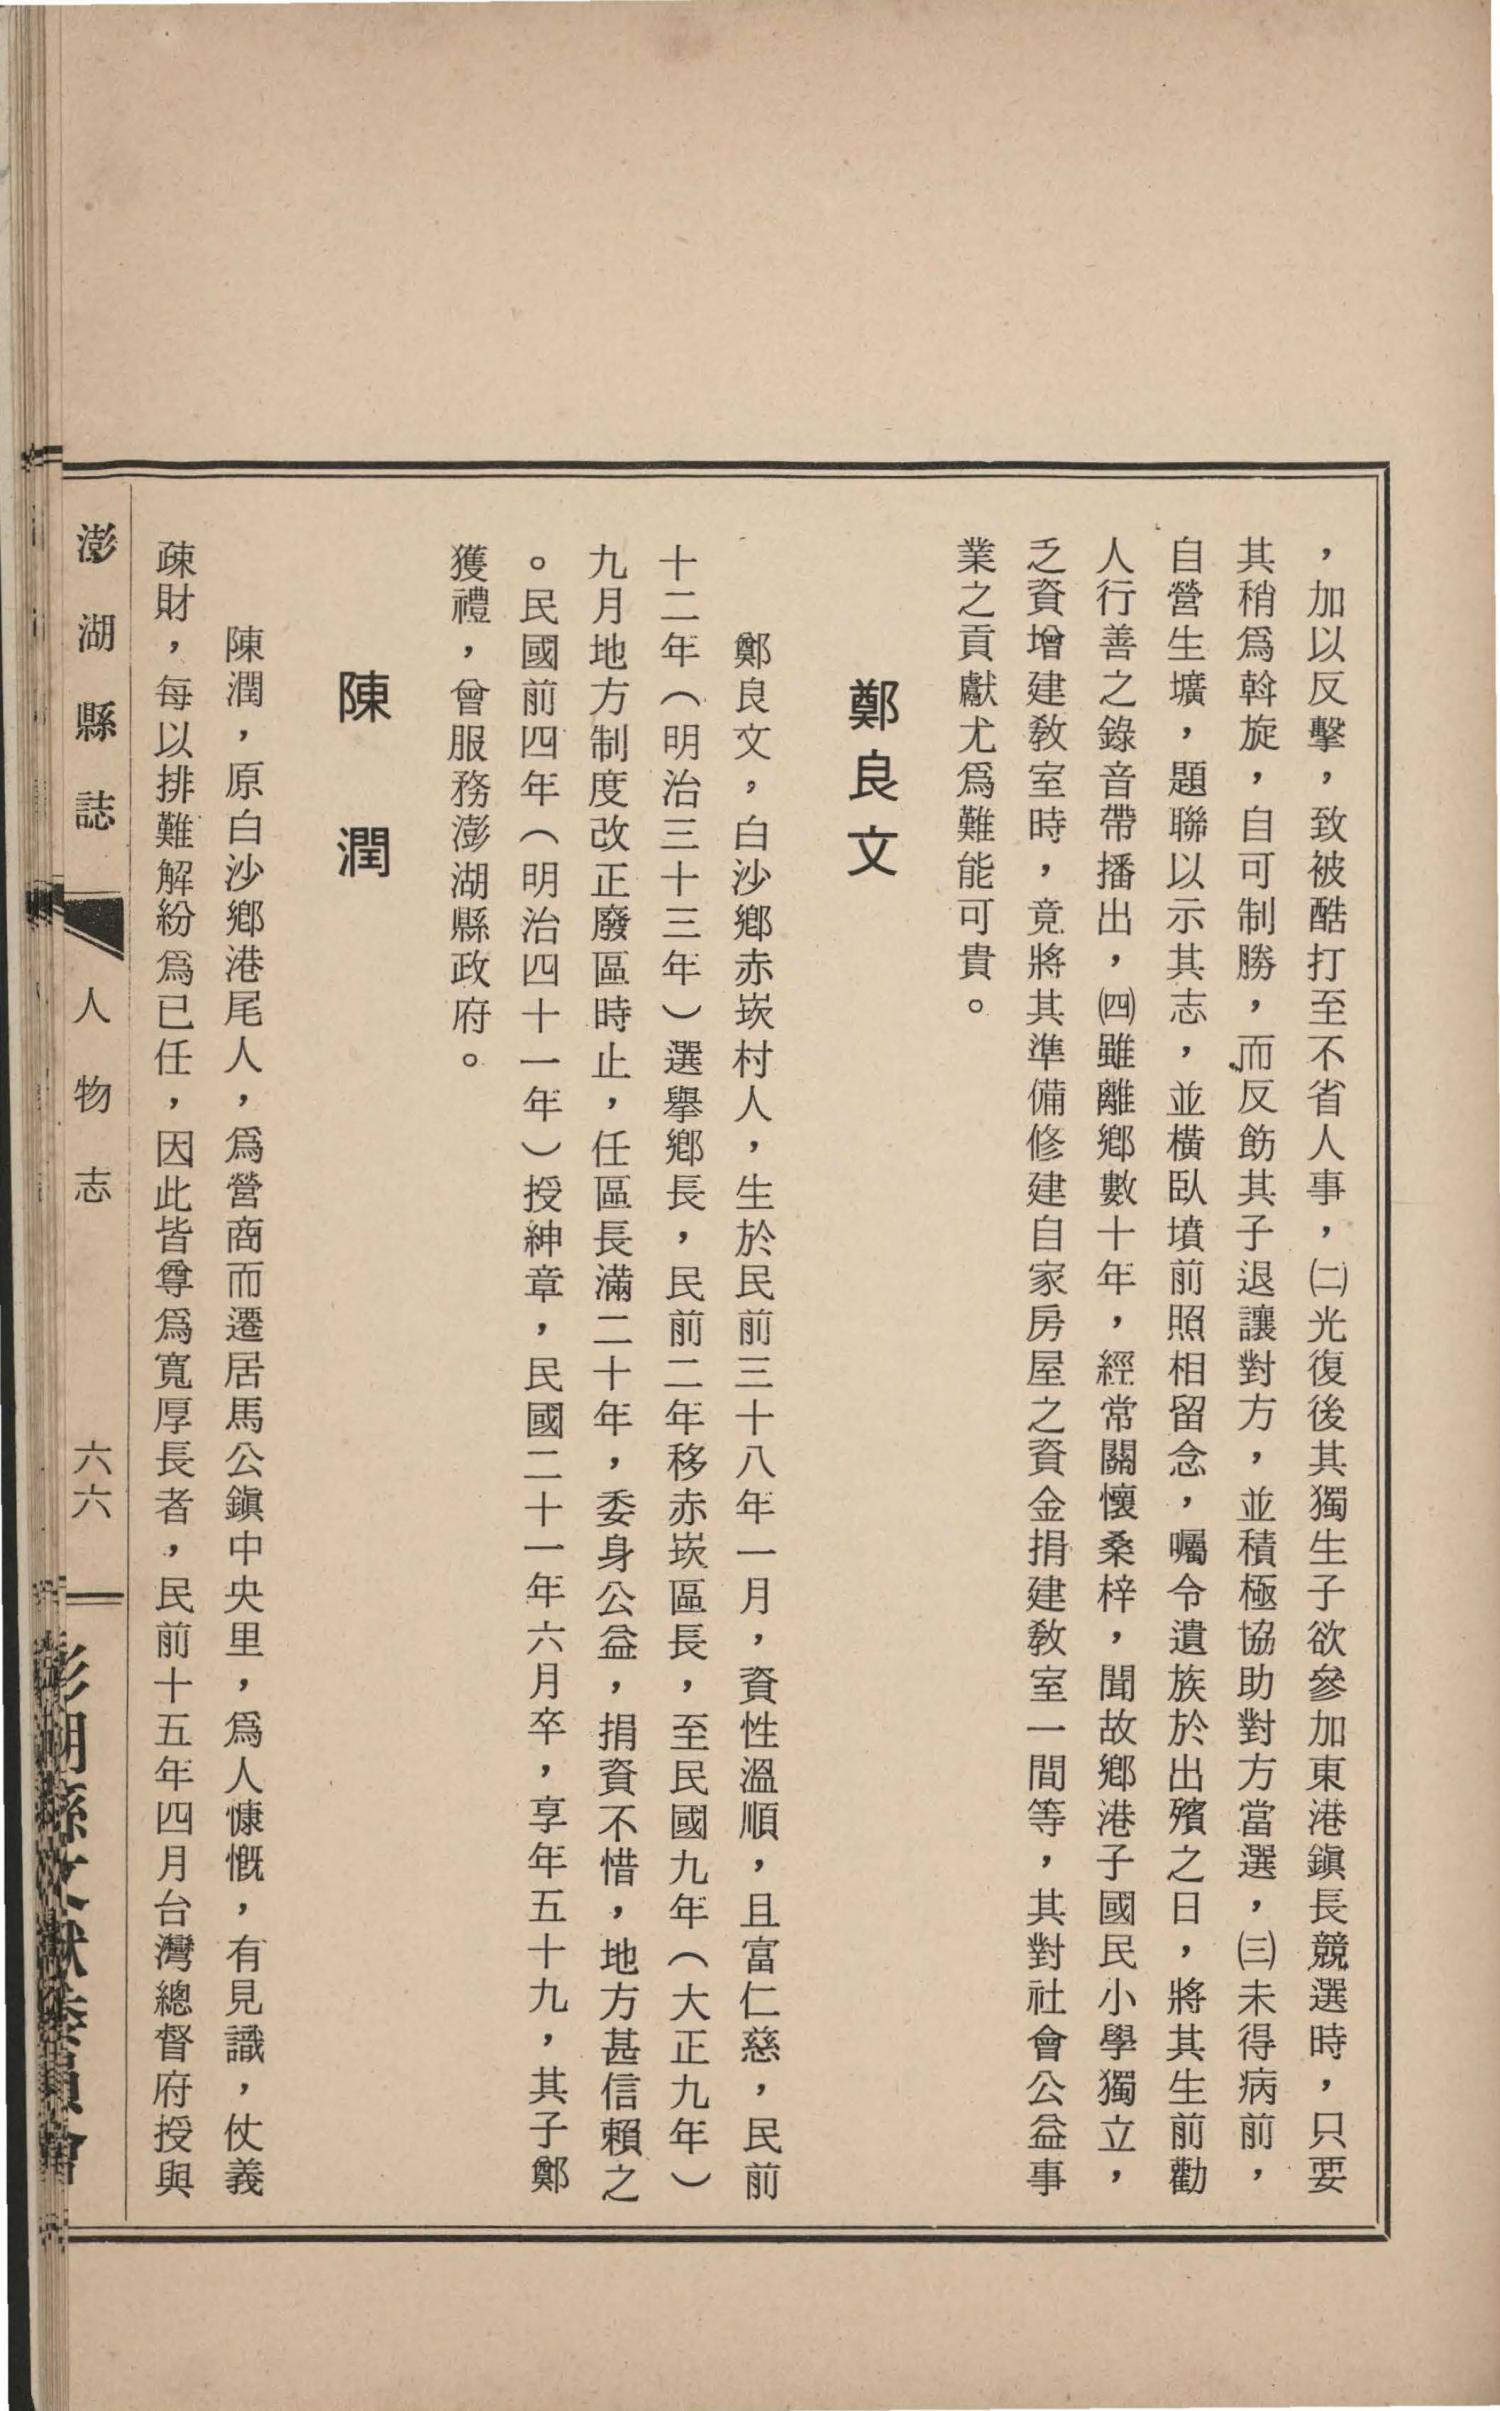 ，加以反擊，致被酷打至不省人事，㈡光復後其獨生子欲參加東港鎭長競選時，只要
其稍爲斡旋，自可制勝，而反飭其子退讓對方，並積極協助對方當選，㈢未得病前，
自營生壙，題聯以示其志，並橫臥墳前照相留念，囑令遺族於出殯之日，將其生前勸
人行善之錄音帶播出，㈣雖離鄉數十年，經常關懷桑梓，聞故鄉港子國民小學獨立，
乏資增建敎室時，竟將其準備修建自家房屋之資金捐建敎室一間等，其對社會公益事
業之貢獻尤爲難能可貴。
鄭良文
鄭良文，白沙鄉赤崁村人，生於民前三十八年一月，資性溫順，且富仁慈，民前
十二年（明治三十三年）選擧鄉長，民前二年移赤崁區長，至民國九年（大正九年）
九月地方制度改正廢區時止，任區長滿二十年，委身公益，捐資不惜，地方甚信賴之
。民國前四年（明治四十一年）授紳章，民國二十一年六月卒，享年五十九，其子鄭
獲禮，曾服務澎湖縣政府。
陳　潤
陳潤，原白沙鄉港尾人，爲營商而遷居馬公鎭中央里，爲人慷慨，有見識，仗義
疎財，每以排難解紛爲已任，因此皆尊爲寬厚長者，民前十五年四月台灣總督府授與
澎湖縣誌　人物志　六六　澎湖縣文獻委員會